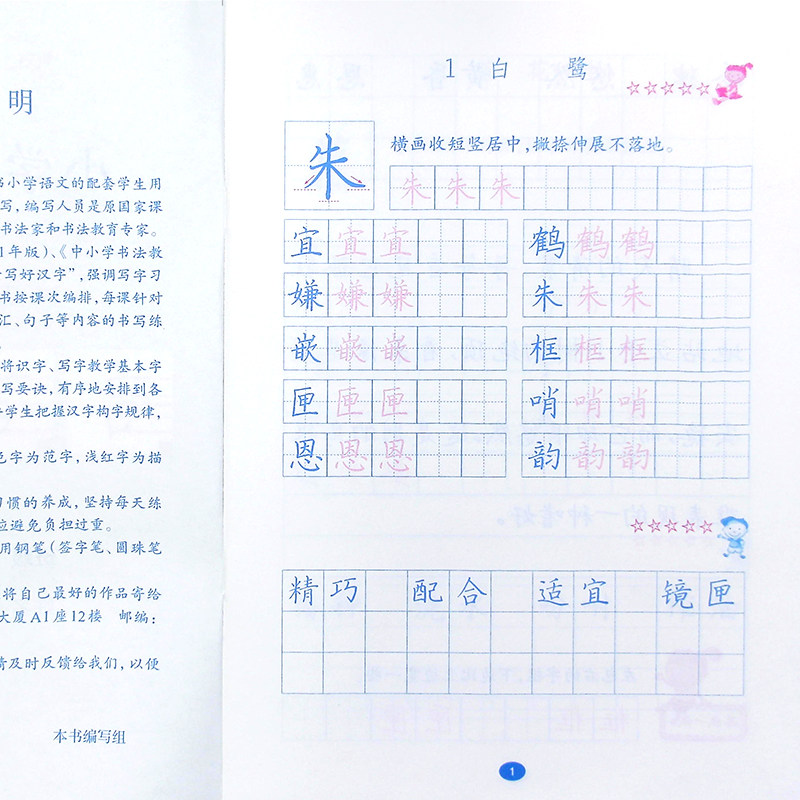 明
书小学语文的配套学生用
写，编写人员是原国家课
书法家和书法教育专家。
1年版）、《中小学书法教
写好汉字”，强调写字习
书按课次编排，每课针对
汇、句子等内容的书写练
将识字、写字教学基本字
写要诀，有序地安排到各
学生把握汉字构字规律，
色字为范字，浅红字为描
习惯的养成，坚持每天练
应避免负担过重。
用钢笔（签字笔、圆珠笔
将自己最好的作品寄给
大厦A1座12楼 邮编：
请及时反馈给我们，以便
本书编写组
1 白 鹭
朱 横画收短竖居中，撇捺伸展不落地。
朱 朱 朱
宜 宜 宜 鹤 鹤 鹤
嫌 嫌 嫌 朱 朱 朱
嵌 嵌 嵌 框 框 框
匣 匣 匣 哨 哨 哨
恩 恩 恩 韵 韵 韵
精巧 配合 适宜 镜匣
1